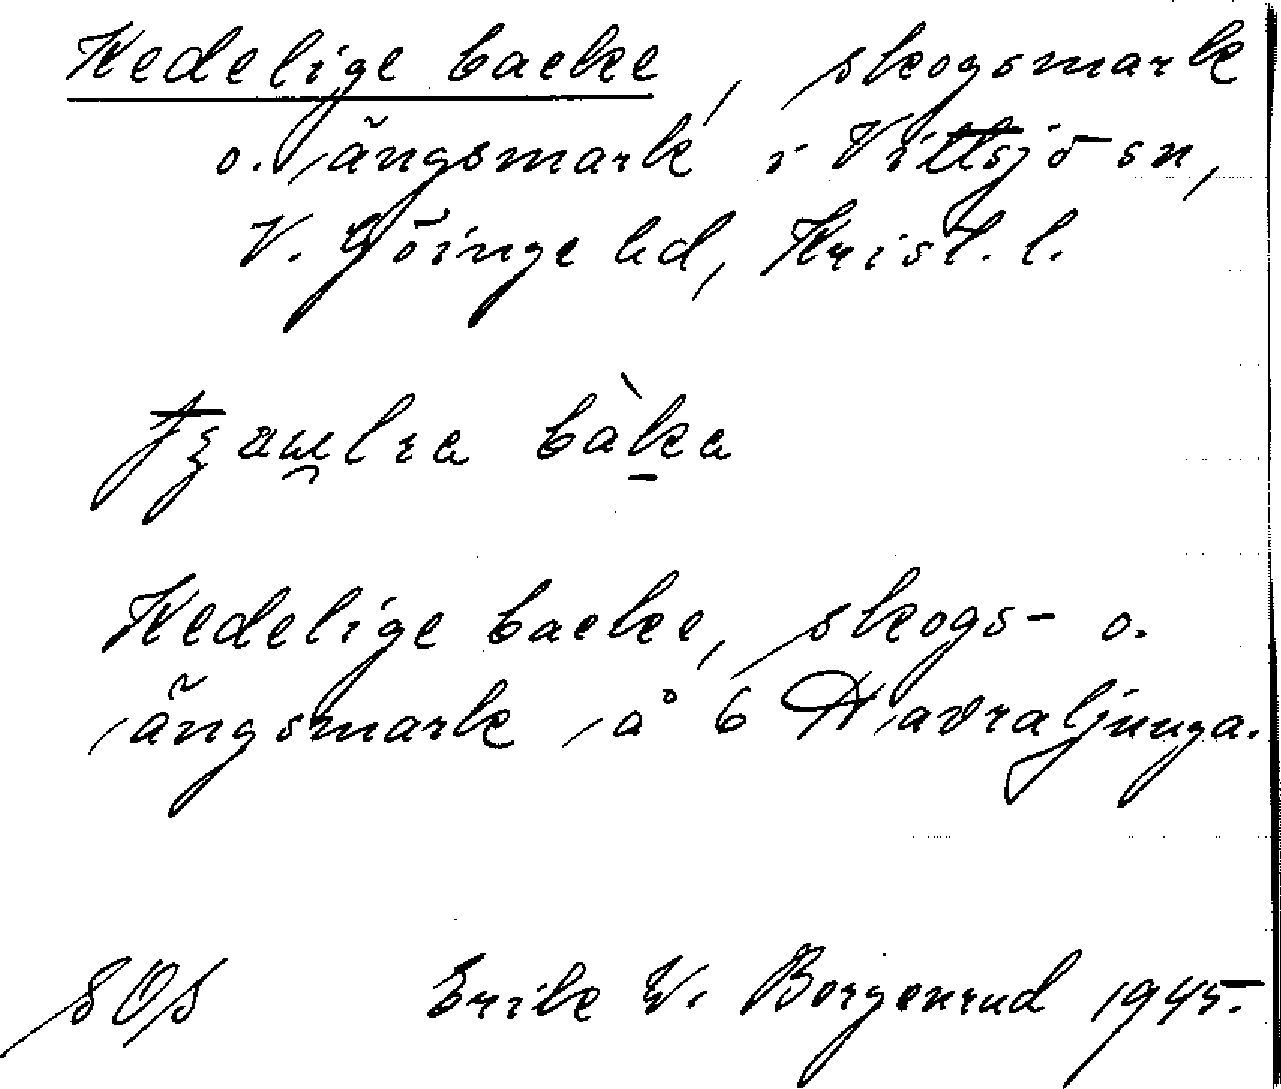 Kedelige backe, skogsmark
o. ängsmark i Vittsjö sn,
V. Göinge hd, Krist. l.
bàka
Kedelige backe, skogs- o.
ängsmark å 6 Havraljunga.
SOS Erik W. Borgenrud 1945.